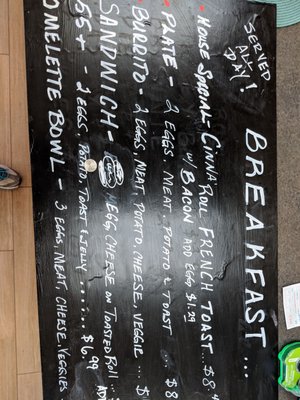 BREAKFAST...
SERVED
ALL
DAY!
• HOUSE SPECIAL CINNA ROLL FRENCH TOAST... $8.
W/ BACON ADD EGG, $1.29
• PLATE - 2 EGGS, MEAT, POTATO & TOAST ... $8
• BURRITO - 2 EGGS, MEAT, POTATO, CHEESE, VEGGIE ... $
SANDWICH - EGG, CHEESE ON TOASTED ROLL...
55+ - 2 EGGS, POTATO, TOAST & JELLY ...... $6.99
AD
OMELETTE BOWL - 3 EGGS, MEAT, CHEESE, VEGGIES